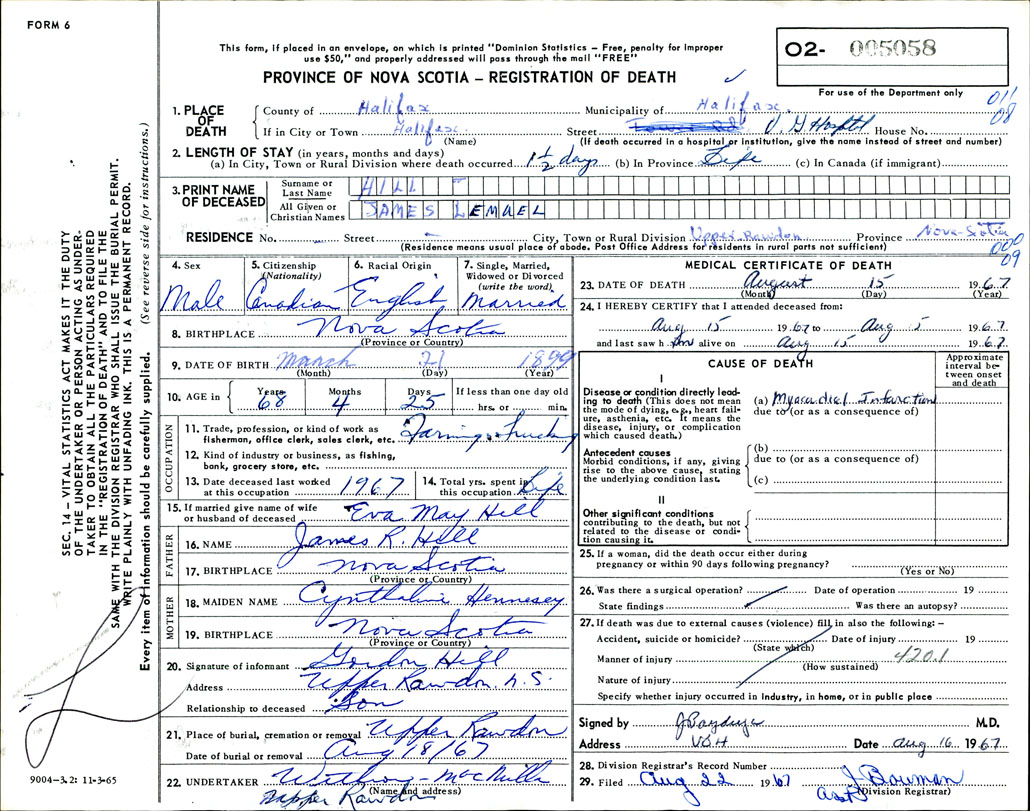 FORM 6
This form, if placed in an envelope, on which is printed "Dominion Statistics – Free, penalty for improper
use $50," and properly addressed will pass through the mail "FREE"
O2- 005058
PROVINCE OF NOVA SCOTIA – REGISTRATION OF DEATH
For use of the Department only
011
08
1. PLACE OF DEATH
County of Halifax Municipality of Halifax
If in City or Town Halifax (Name) Street V. G Hospital House No.
(If death occurred in a hospital or institution, give the name instead of street and number)
2. LENGTH OF STAY (in years, months and days)
(a) In City, Town or Rural Division where death occurred 1½ days (b) In Province Life (c) In Canada (if immigrant)
3. PRINT NAME OF DECEASED
Surname or Last Name HILL
All Given or Christian Names JAMES LEMUEL
RESIDENCE No. – Street – City, Town or Rural Division Upper Rawdon Province Nova-Scotia
(Residence means usual place of abode. Post Office Address for residents in rural parts not sufficient)
000
09
4. Sex Male
5. Citizenship (Nationality) Canadian
6. Racial Origin English
7. Single, Married, Widowed or Divorced (write the word) Married
8. BIRTHPLACE Nova Scotia
(Province or Country)
9. DATE OF BIRTH March 21 1899
(Month) (Day) (Year)
10. AGE in Years 68 Months 4 Days 25 If less than one day old hrs. or min.
OCCUPATION
11. Trade, profession, or kind of work as fisherman, office clerk, sales clerk, etc. Farming & Trucking
12. Kind of industry or business, as fishing, bank, grocery store, etc.
13. Date deceased last worked at this occupation 1967
14. Total yrs. spent in this occupation Life
15. If married give name of wife or husband of deceased Eva May Hill
FATHER
16. NAME James R. Hill
17. BIRTHPLACE Nova Scotia
(Province or Country)
MOTHER
18. MAIDEN NAME Hennesey
19. BIRTHPLACE Nova Scotia
(Province or Country)
20. Signature of informant Gordon Hill
Address Upper Rawdon. N.S.
Relationship to deceased Son
21. Place of burial, cremation or removal Upper Rawdon
Date of burial or removal Aug 18/67
22. UNDERTAKER
(Name and address)
Upper Rawdon
MEDICAL CERTIFICATE OF DEATH
23. DATE OF DEATH August 15 1967
(Month) (Day) (Year)
24. I HEREBY CERTIFY that I attended deceased from:
Aug 15 1967 to Aug 15 1967
and last saw him alive on Aug 15 1967
CAUSE OF DEATH
Approximate interval between onset and death
I
Disease or condition directly leading to death (This does not mean the mode of dying, e.g., heart failure, asthenia, etc. It means the disease, injury, or complication which caused death.)
(a) Myocardial Infarction
due to (or as a consequence of)
Antecedent causes
Morbid conditions, if any, giving rise to the above cause, stating the underlying condition last.
(b)
due to (or as a consequence of)
(c)
II
Other significant conditions
contributing to the death, but not related to the disease or condition causing it.
25. If a woman, did the death occur either during
pregnancy or within 90 days following pregnancy?
(Yes or No)
26. Was there a surgical operation? Date of operation 19
State findings Was there an autopsy?
27. If death was due to external causes (violence) fill in also the following: –
Accident, suicide or homicide? Date of injury 19
(State which)
Manner of injury 420.1
(How sustained)
Nature of injury
Specify whether injury occurred in industry, in home, or in public place
Signed by M.D.
Address VGH Date Aug 16 1967
28. Division Registrar's Record Number
29. Filed Aug 22 1967 J Bowman
(Division Registrar)
SEC. 14 – VITAL STATISTICS ACT MAKES IT THE DUTY
OF THE UNDERTAKER OR PERSON ACTING AS UNDER-
TAKER TO OBTAIN ALL THE PARTICULARS REQUIRED
IN THE "REGISTRATION OF DEATH" AND TO FILE THE
SAME WITH THE DIVISION REGISTRAR WHO SHALL ISSUE THE BURIAL PERMIT.
WRITE PLAINLY WITH UNFADING INK. THIS IS A PERMANENT RECORD.
Every item of information should be carefully supplied. (See reverse side for instructions.)
9004–3.2: 11-3-65